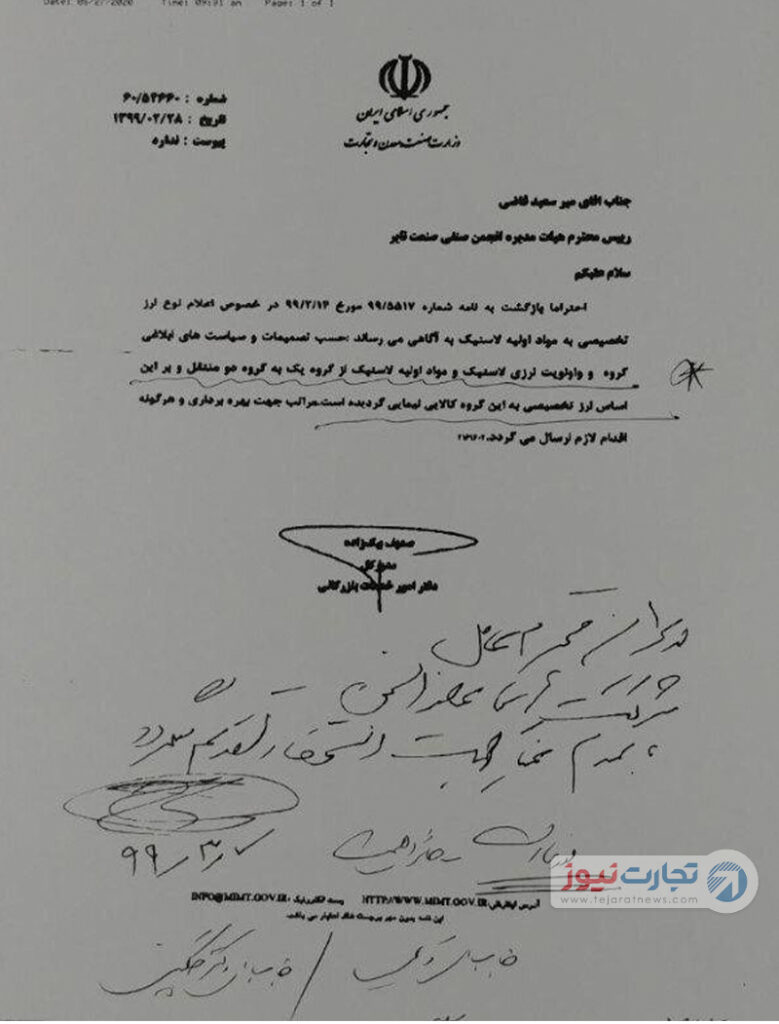 Time: 09:31 am Page: 1 of 1
جمهوری اسلامی ایران
وزارت صنعت، معدن و تجارت
شماره : ۶۰/۵۲۶۶۰
تاریخ : ۱۳۹۹/۰۲/۲۸
پیوست : ندارد
جناب آقای میر سعید قاضی
رییس محترم هیات مدیره انجمن صنفی صنعت تایر
سلام علیکم
احتراما بازگشت به نامه شماره ۹۹/۵۵۱۷ مورخ ۹۹/۲/۱۴ در خصوص اعلام نوع ارز
تخصیصی به مواد اولیه لاستیک به آگاهی می رساند :حسب تصمیمات و سیاست های ابلاغی
گروه و اولویت ارزی لاستیک و مواد اولیه لاستیک از گروه یک به گروه دو منتقل و بر این
اساس ارز تخصیصی به این گروه کالایی نیمایی گردیده است.مراتب جهت بهره برداری و هرگونه
اقدام لازم ارسال می گردد.
مدیرکل
دفتر امور خدمات بازرگانی
مدیران محترم عامل
شرکت
جهت استحضار تقدیم میگردد
۹۹/۳/۷
آدرس اینترنتی:HTTP://WWW.MIMT.GOV.IR پست الکترونیک :INFO@MIMT.GOV.IR
این نامه بدون مهر برجسته فاقد اعتبار می باشد.
تجارت نیوز
www.tejaratnews.com